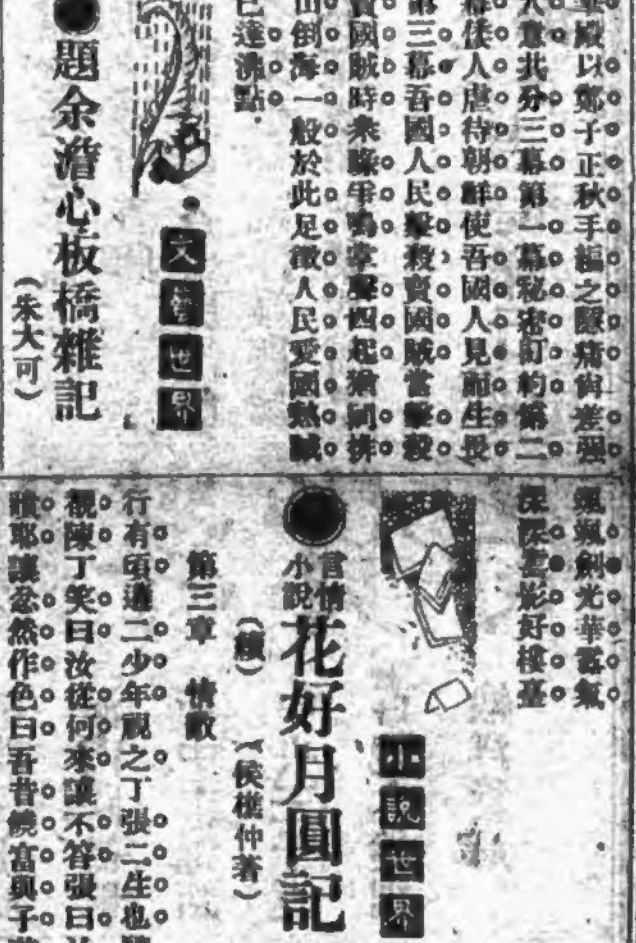 殿以鄭子正秋手編之隱痛與
人意共分三幕第一幕秘密訂約第二
幕倭人虐待朝鮮使吾國人見而生畏
第三幕吾國人民擊救賣國賊當擊殺
賣國賊時來賓掌聲四起猶同排
山倒海一般於此足徵人民愛國熱
已達沸點
文藝世界
題余澹心板橋雜記
（朱大可）
劍光華
影好樓臺
小說世界
言情小說
花好月圓記
（續）（侯樵仲著）
第三章 情敵
行有頃遇二少年視之丁張二生也
視陳丁笑曰汝從何來讓不答張曰
耶讓忿然作色曰吾昔饒富與子